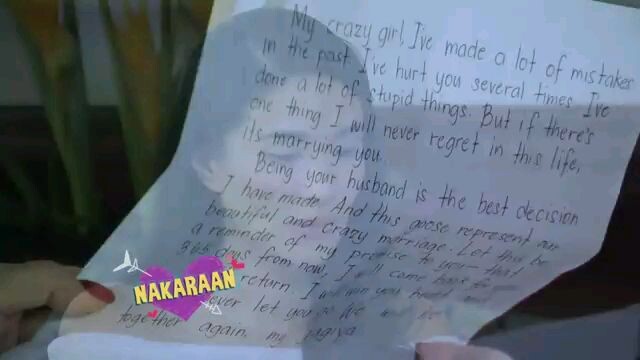 My crazy girl, I've made a lot of mistakes
in the past I've hurt you several times I've
done a lot of stupid things. But if there's
one thing I will never regret in this life,
its marrying you.
Being your husband is the best decision
I have made. And this goose represent our
beautiful and crazy marriage. Let this be
a reminder of my promise to you- that
365 days from now, I will come back
return. I will win you heart
ever let you go We
together again, my
NAKARAAN